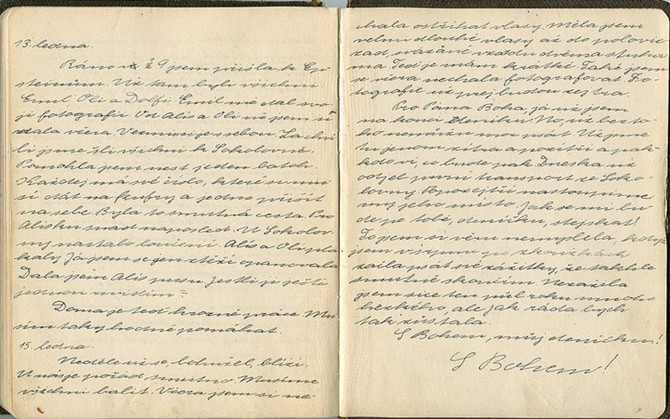 13. ledna.
Ráno v ž 9 jsem přišla k Ep-
steinům. Už tam byli všichni
Emil, Oli a Dolfi. Emil mě dal svo-
ji fotografii. Od Alis a Oli už jsem si
vzala včera. Vezmu si je s sebou. Za chví-
li jsme šli všichni k Sokolovně
Pomohla jsem nest jeden batoh.
Každej má své číslo, které si musí
si dát na kufry a jedno přišít
na sebe. Byla to smutná cesta. Pro
Alisku snad naposled. U Sokolov-
ny nastalo loučení. Alis a Oli pla-
kaly. Já jsem se jen ztěží opanovala
Dala jsem Alis pusu. Jestli je ještě
jednou uvidím?
Doma je teď hrozně práce. Mu-
sím taky hodně pomáhat.
15. ledna.
Neděle už se, bohužel, blíží.
U nás je pořád smutno. Musíme
všichni balit. Včera jsem si ne-
chala ostříhat vlasy. Měla jsem
velmi dlouhé vlasy až do polovic
zad, svázané vzadu dvěma stuhra-
ma. Teď je mám krátké. Také jsem
se včera nechala fotografovat. Fo-
tografie už prej budou zejtra.
Pro Pána Boha, já už jsem
na konci deníku! No, už beztak
nemůžu moc psát. Už jsme
tu jenom zítra a pozítří a pak –
kdo ví, co bude pak. Dneska už
odjel první transport ze Soko-
lovny. Popozejtří nastoupíme
my jeho místo. Jak se mi bu-
de po tobě, deníčku, stejskat!
To jsem si věru nemyslela, když
jsem v srpnu po zkouškách
začla psát své zážitky, že takhle
smutně skončím. Nezažila
jsem sice ten půl roku mnoho
hezkého, ale jak ráda bych
tak zůstala.
S Bohem, můj deníčku!
S Bohem!